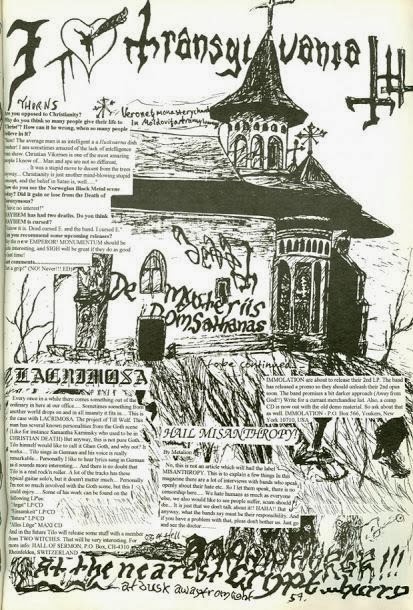 I ♥ transylvania
Voroneț monasterychurch
in Moldovita,
THORNS
Are you opposed to Christianity?
Why do you think so many people give their life to
Christ"? How can it be wrong, when so many people
believe in it?
The average man is as intelligent a a
. I am sometimes amazed of the lack of intelligence
show. Christian Vikernes is one of the most amazing
people I know of... Man and ape are not so different,
It was a stupid move to descent from the trees
anyway... Christianity is just another mind-blowing stupid
concept, and the belief in Satan is, well....."
How do you see the Norwegian Black Metal scene
today? Did it gain or lose from the Death of
Euronymous?
have no interest!"
MAYHEM has had two deaths. Do you think
MAYHEM is cursed?
know it is. Dead cursed E. and the band. I cursed E."
Can you recommend some upcoming releases?
the new EMPEROR! MONUMENTUM should be
interesting, and SIGH will be great if they do as good
last time!
comments...
a grip!" (NO! Never!!! ED)
De mysteriis
Dom Sathanas
to be continued..
LACRIMOSA
Every once in a while there comes something out of the
ordinary in here at our office.... Sometimes something from
another world drops on and in all insanity it fits in.... This is
the case with LACRIMOSA. The project of Till Wolff. This
man has several known personalities from the Goth scene
(Like for instance Samantha Kaminsky who used to be in
CHRISTIAN DEATH) But anyway, this is not pure Goth.
Tilo himself would like to call it Glam Goth, and why not? It
works.... Tilo sings in German and his voice is really
remarkable... Personally I like to hear lyrics sung in German
as it sounds more interesting... And there is no doubt that
Tilo is a real rock'n roller. A lot of the tracks has these
typical guitar solo's, but it doesn't matter much... Personally
I'm not so much involved with the Goth scene, but this I
could enjoy.... Some of his work can be found on the
following LPies
"Angst" LP/CD
"Einsamkeit" LP/CD
"Satura" LP/CD
"Alles Lüge" MAXI CD
And in the future Tilo will release some stuff with a member
from TWO WITCHES. That will be very interesting. For
more info: HALL OF SERMON, P.O. Box, CH-4310
Rheinfelden, SWITZERLAND
IMMOLATION are about to release their 2nd LP. The band
has released a promo so they should unleash their 2nd opus
soon. The band promises a bit darker approach (Away from
God!!) Write for a current merchandise list. Also, a comp
CD is now out with the old demo material. So ask about that
as well. IMMOLATION - P.O. Box 566, Yonkers, New
York 10710, USA
HAIL MISANTHROPY
By Metalion
No, this is not an article which will hail the label
MISANTHROPY. This is to explain a few things. In this
magazine there are a lot of interviews with bands who speak
openly about their hate etc.. So I let them speak, there is no
censorship here.... We hate humans as much as everyone
else, we also would like to see people suffer, scum should
die... It is just that we don't talk about it! HAHA!! But
anyway, what the bands say must be their responsibility. And
if you have a problem with that, please don't bother us. Just go
and see the doctor ...........
at the nearest Crypt
at dusk away from light
57.